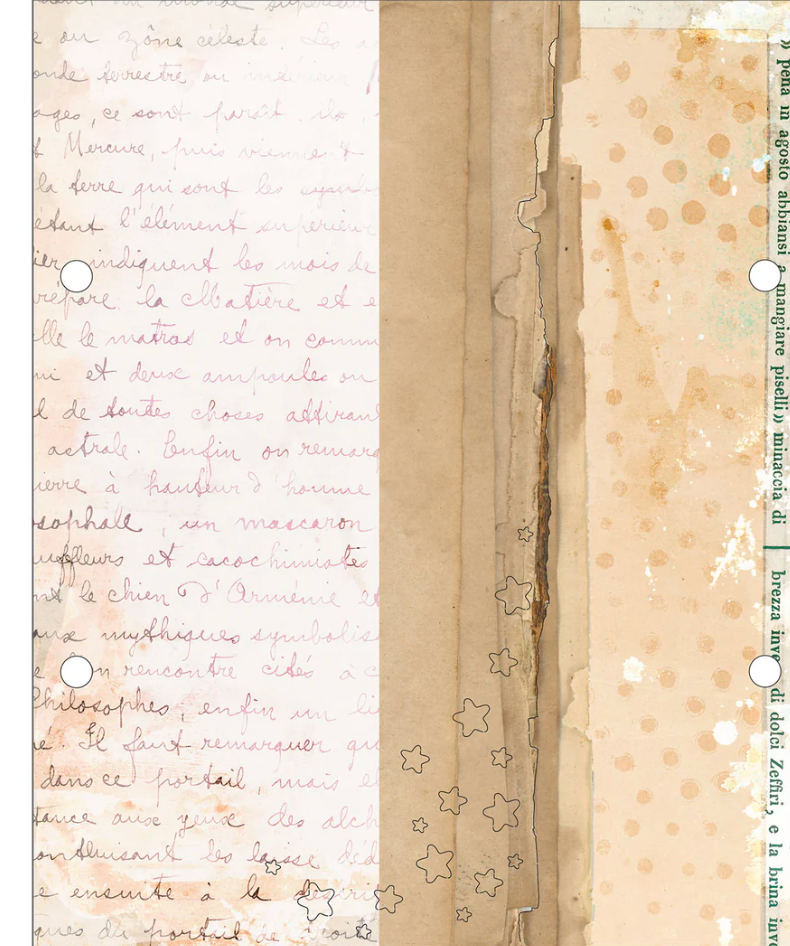 e ou zône céleste. Les a
onde terrestre ou inférieur
ages, ce sont paraît-ils,
t Mercure, puis viennent
la terre qui sont les
étant l'élément supérieur
ier indiquent les mois de
répare la Matière et e
lle le matras et on comm
ni et deux ampoules ou
l de toutes choses attirant
astrale. Enfin on remarq
ierre à hauteur d'homme
sophale, un mascaron
uffleurs et cacochimistes
nt le chien d'Arménie et
aux mythiques symbolis
e on rencontre cités à c
Philosophes, enfin un li
é. Il faut remarquer qu
dans ce portail, mais e
tance aux yeux des alch
onduisant les laisse déd
e ensuite à la
ques du portail de droite
» pena in agosto abbiansi a mangiare piselli» minaccia di
brezza inve di dolci Zeffiri, e la brina inve